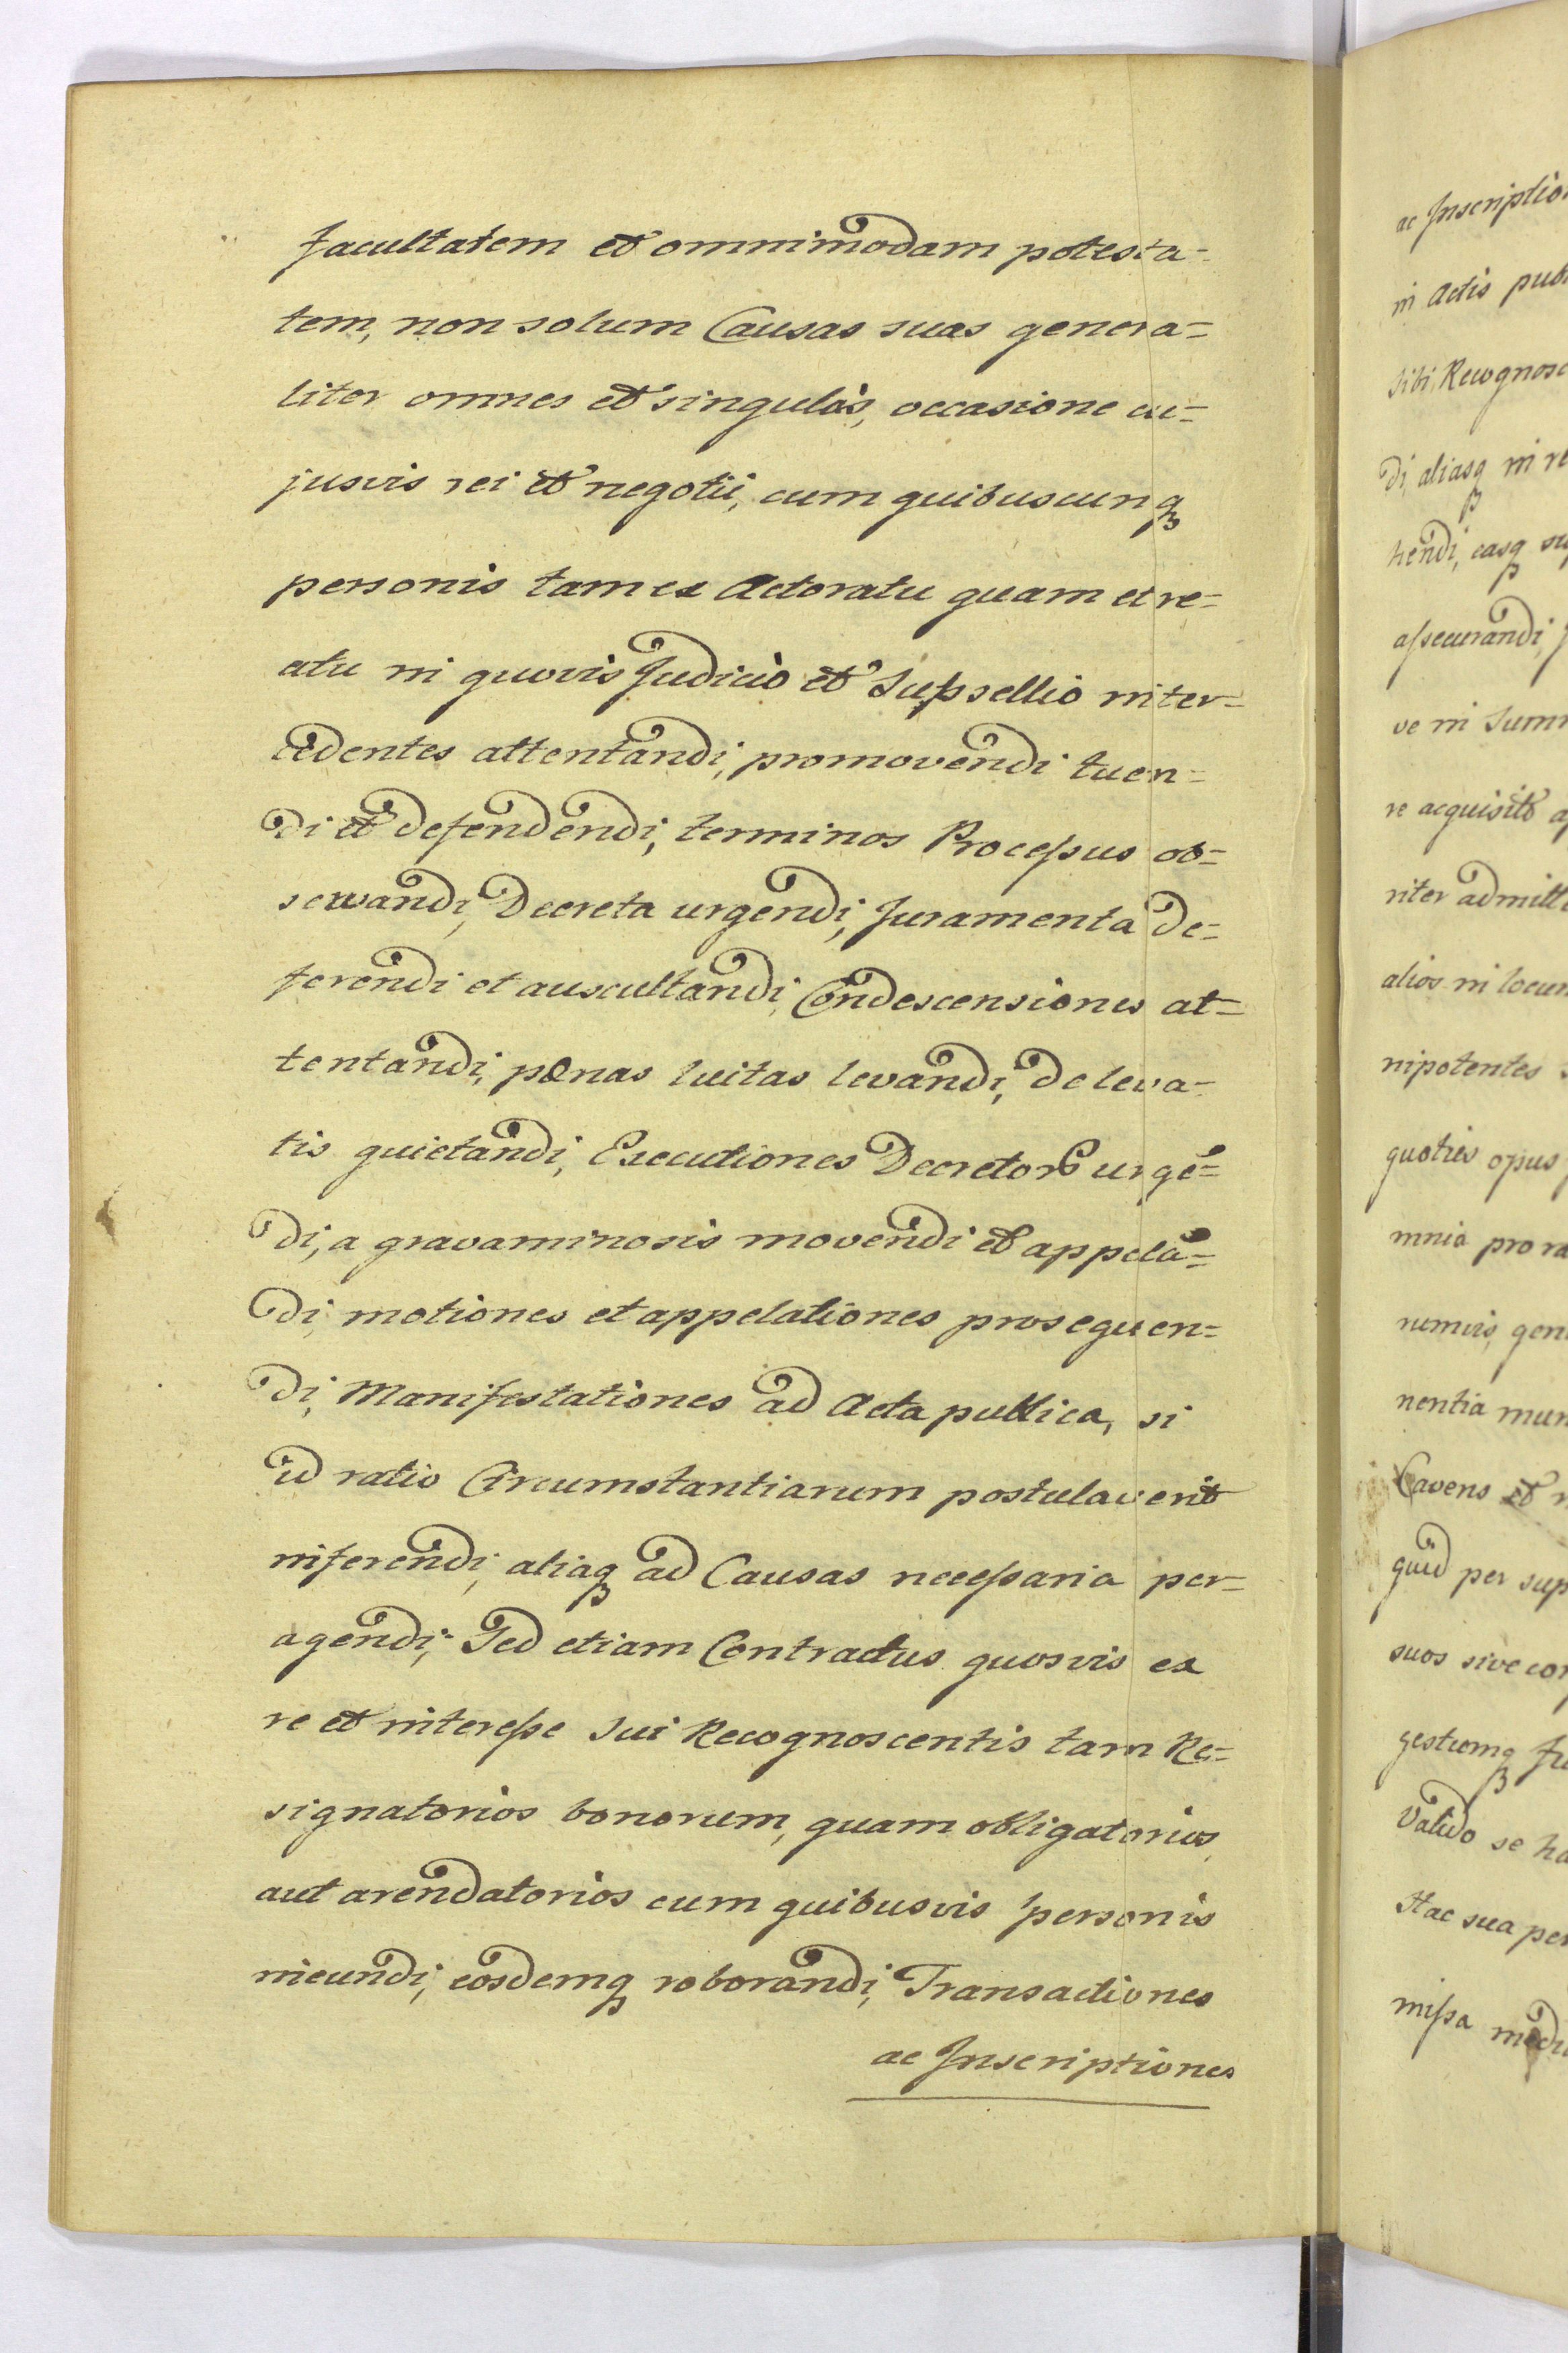 facultatem et omnimodam potesta=
tem, non solum Causas suas genera=
liter omnes et singulas, occasione cu=
jusvis rei et negotii, cum quibuscunq
personis tam ex Actoratu quam et re=
atu in quovis Judicio et Supsellio inter=
cedentes attentandi, promovendi tuen=
di et defendendi, terminos Processus ob=
servandi, Decreta urgendi, Juramenta de=
ferendi et auscultandi, Condescensiones at=
tentandi, pænas luitas levandi, de leva=
tis quietandi, Executiones Decretor urgē=
di, a gravaminosis movendi et appelā=
di, motiones et appelationes prosequen=
di, Manifestationes ad Acta publica, si
id ratio Circumstantiarum postulaverit
inferendi, aliaq ad Causas necessaria per=
agendi; Sed etiam Contractus quosvis ex
re et interesse sui Recognoscentis tam Re=
signatorios bonorum, quam obligatorios,
aut arendatorios cum quibusvis personis
ineundi, eosdemq roborandi, Transactiones
ac Inscriptiones
ac Inscription
in Actis pub
sibi Recognosc
di, aliasq in re
hendi, easq
assecurandi,
ve in Sum
re acquisito
riter admitt
alios in locum
nipotentes
quoties opus
mnia pro ra
numvis, gen
nentia mun
Cavens et
quid per sup
suos sive con
gestumq
Valido se ha
Hac sua per
missa